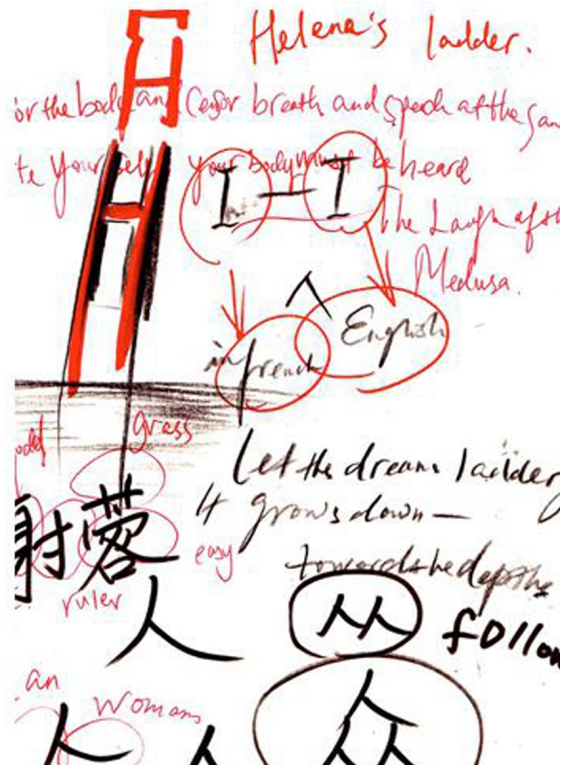 Helena's ladder.
H
or the body and Censor breath and speech at the sam
te yourself your body must be heard
I — I
The Laugh of th
Medusa.
人
in french
English
grass
Let the dream ladder
It grows down —
towards the depths
射蓉
easy
ruler
人
从
follow
an
Womans
人
人
众